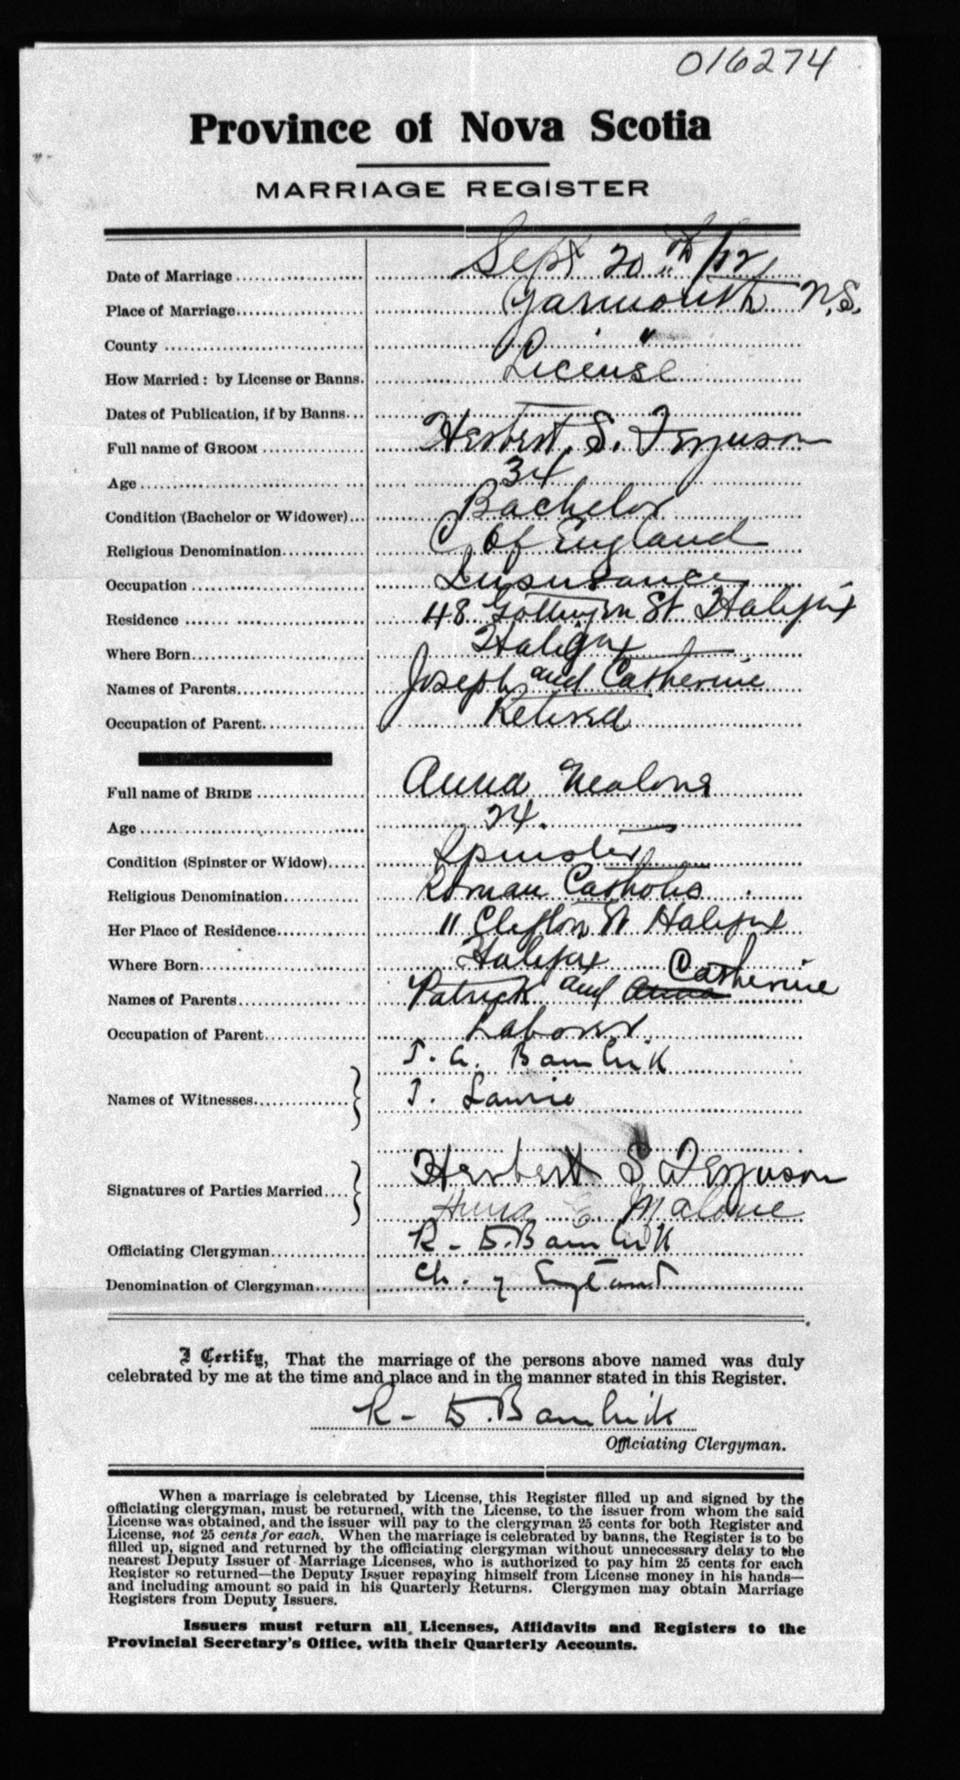 016274
Province of Nova Scotia
MARRIAGE REGISTER
Date of Marriage Sept 20th/12
Place of Marriage Yarmouth N.S.
County "
How Married: by License or Banns. License
Dates of Publication, if by Banns —
Full name of GROOM Herbert S. Ferguson
Age 34
Condition (Bachelor or Widower) Bachelor
Religious Denomination C. of England
Occupation Insurance
Residence 48 Gottingen St Halifax
Where Born Halifax
Names of Parents Joseph and Catherine
Occupation of Parent Retired
Full name of BRIDE Anna Malone
Age 24.
Condition (Spinster or Widow) Spinster
Religious Denomination Roman Catholic
Her Place of Residence 11 Clifton St Halifax
Where Born Halifax
Names of Parents Patrick and Anna Catherine
Occupation of Parent Laborer
Names of Witnesses
T. Laurie
Signatures of Parties Married Herbert S. Ferguson
Anna E. Malone
Officiating Clergyman R-D. Bambrick
Denomination of Clergyman Ch. of England
I Certify, That the marriage of the persons above named was duly
celebrated by me at the time and place and in the manner stated in this Register.
R-D. Bambrick
Officiating Clergyman.
When a marriage is celebrated by License, this Register filled up and signed by the
officiating clergyman, must be returned, with the License, to the issuer from whom the said
License was obtained, and the issuer will pay to the clergyman 25 cents for both Register and
License, not 25 cents for each. When the marriage is celebrated by banns, the Register is to be
filled up, signed and returned by the officiating clergyman without unnecessary delay to the
nearest Deputy Issuer of Marriage Licenses, who is authorized to pay him 25 cents for each
Register so returned—the Deputy Issuer repaying himself from License money in his hands—
and including amount so paid in his Quarterly Returns. Clergymen may obtain Marriage
Registers from Deputy Issuers.
Issuers must return all Licenses, Affidavits and Registers to the
Provincial Secretary's Office, with their Quarterly Accounts.